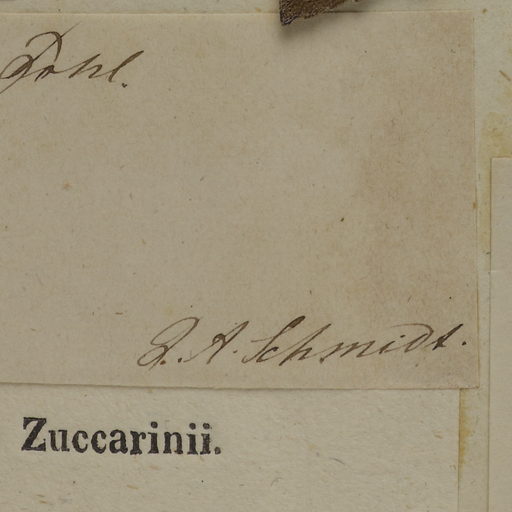 Pohl.
J. A. Schmidt.
Zuccarinii.